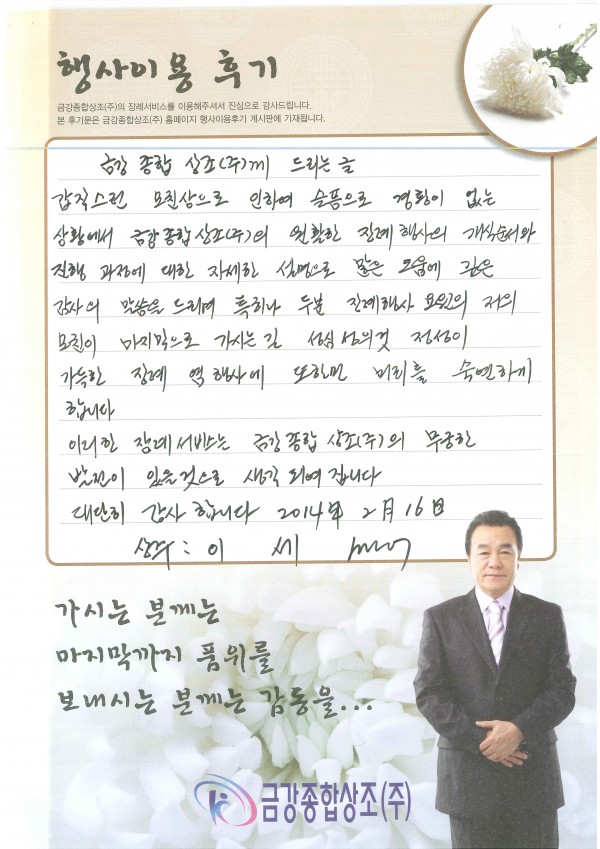 행사이용 후기
금강종합상조(주)의 장례서비스를 이용해주셔서 진심으로 감사드립니다.
본 후기문은 금강종합상조(주) 홈페이지 행사이용후기 게시판에 기재됩니다.
금강 종합 상조(주)께 드리는 글
갑작스런 모친상으로 인하여 슬픔으로 경황이 없는
상황에서 금강종합상조(주)의 원활한 장례행사의 격식순서와
진행 과정에 대한 자세한 설명으로 많은 도움에 깊은
감사의 말씀을 드리며 특히나 두분 장례행사 요원의 저의
모친이 마지막으로 가시는길 성심 성의것 정성이
가득한 장례 행사에 또한번 머리를 숙연하게
합니다
이러한 장례서비스는 금강종합 상조(주)의 무궁한
발전이 있을것으로 생각 되여 집니다
대단히 감사 합니다 2014年 2月 16日
상주: 이 세
가시는 분께는
마지막까지 품위를
보내시는 분께는 감동을...
금강종합상조(주)